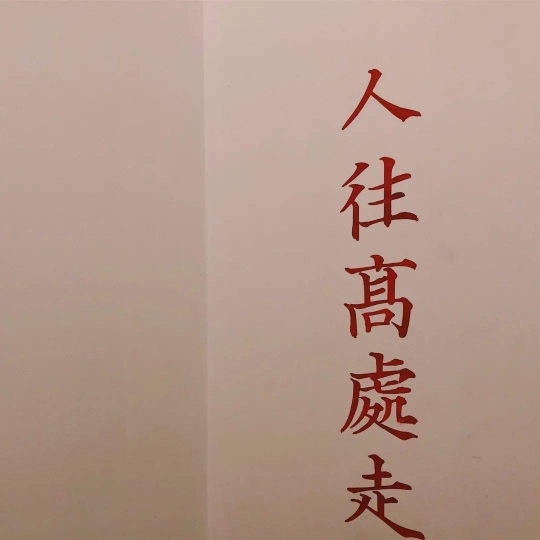 人往高處走